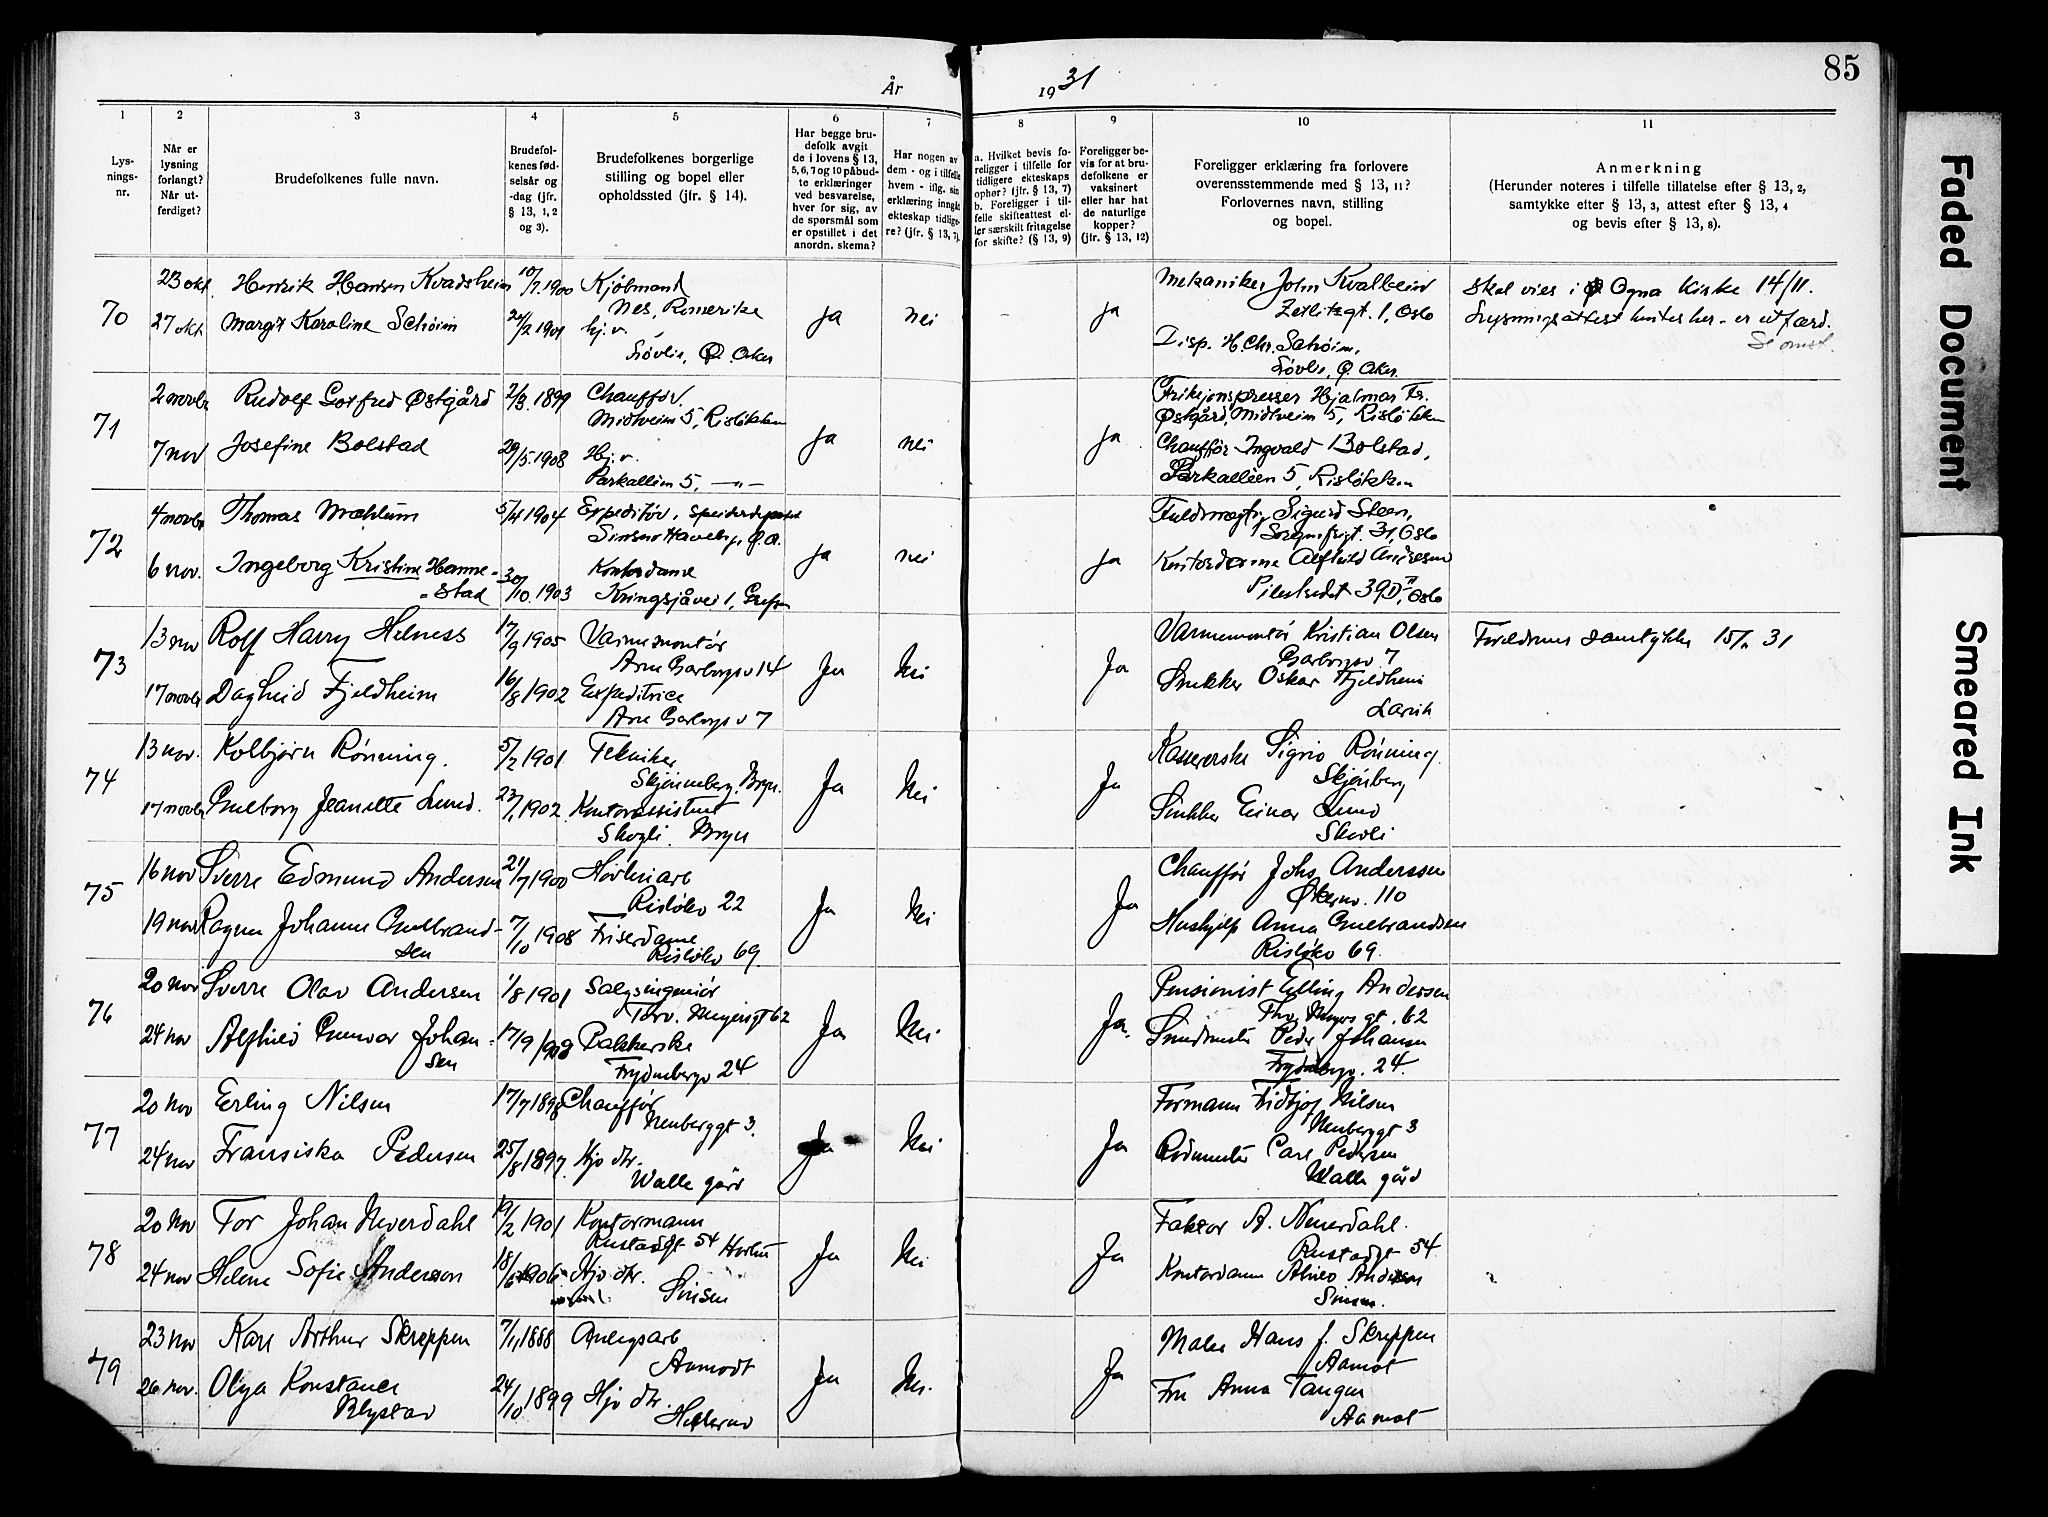 85
År 1931
1 2 3 4 5 6 7 8 9 10 11
Lys-
nings-
nr.
Når er
lysning
forlangt?
Når ut-
ferdiget?
Brudefolkenes fulle navn.
Brudefol-
kenes fød-
selsår og
-dag (jfr.
§ 13, 1, 2
og 3).
Brudefolkenes borgerlige
stilling og bopel eller
opholdssted (jfr. § 14).
Har begge bru-
defolk avgit
de i lovens § 13,
5, 6, 7 og 10 påbud-
te erklæringer
ved besvarelse,
hver for sig, av
de spørsmål som
er opstillet i det
anordn. skema?
Har nogen av
dem - og i tilfelle
hvem - iflg. sin
erklæring inngått
ekteskap tidlige-
re? (jfr. § 13, 7).
a. Hvilket bevis fo-
religger i tilfelle for
tidligere ekteskaps
ophør? (jfr. § 13, 7)
b. Foreligger i til-
felle skifteattest el-
ler særskilt fritagelse
for skifte? (§ 13, 9)
Foreligger be-
vis for at bru-
defolkene er
vaksinert
eller har hat
de naturlige
kopper?
(jfr. § 13, 12)
Foreligger erklæring fra forlovere
overensstemmende med § 13, 11?
Forlovernes navn, stilling
og bopel.
Anmerkning
(Herunder noteres i tilfelle tillatelse efter § 13, 2,
samtykke efter § 13, 3, attest efter § 13, 4
og bevis efter § 13, 8).
70
23 okt. Henrik Hansen Kvadsheim 10/7.1900 Kjølmand
Nes, Romerike
27 okt. Margit Karoline Schøim 24/2 1901 hj.v.
Løvlie, Ø. Aker
ja nei ja
Mekaniker John Kvalbein
Zetlitzgt. 1, Oslo
Disp. H. Chr. Schøim,
Løvlie, Ø. Aker.
Skal vies i Ogna kirke 14/11.
Lysningsattest er utfærd.
71
2 novbr Rudolf Gotfred Østgård 2/3. 1899 Chauffør,
Midtveim 5, Risløkken
7 nov Josefine Bolstad 29/5.1908 Hj.v.
Parkalléen 5, —"—
ja nei ja
Friksjonspresser Hjalmar Fr.
Østgård, Midtveim 5, Risløkken
Chauffør Ingvald Bolstad,
Parkalléen 5, Risløkken
72
4 novbr Thomas Mæhlum 5/4 1904 Expeditør,
Sinsen Haveby, Ø.A.
6 nov. Ingeborg Kristine Hanne-
-stad 30/10.1903 Kontordame
Kringsjåvei 1, Grefsen
ja nei ja
Fuldmægtig Sigurd Steen,
Sorgenfrigt. 31, Oslo
Kontordame Alfhild Andresen
Pilestredet 39 D II, Oslo
73
13 nov Rolf Harry Helness 17/9 1905 Varmemontør
Arne Garborgsv 14
17 novbr Daghild Fjeldheim 16/8 1902 Expeditrice
Arne Garborgs v 7
Ja Nei Ja
Varmemontør Kristian Olsen
Garborgsv 7
Snekker Oskar Fjeldheim
Larvik
Foreldrenes samtykke 15/11 31
74
13 nov. Kolbjørn Rønning. 5/2 1901 Tekniker
Skjønneberg, Bryn.
17 novbr Gulborg Jeanette Lund. 23/1 1902 Kontorassistent
Skogli. Bryn
Ja Nei Ja
Kassererske Sigrid Rønning.
Skjønberg
Snekker Einar Lund
Skogli
75
16 nov Sverre Edmund Andersen 21/7 1900 Høvleriarb
Risløkv 22
19 nov Ragna Johanne Gulbrand-
sen 7/10 1908 Friserdame
Risløkv 69.
Ja Nei Ja
Chauffør Johs Anderssen
Økernv. 110
Hushjelp Anna Gulbrandsen
Risløkv 69.
76
20 nov Sverre Olav Andersen 1/8 1901 Salgsingeniør
Thv. Meyersgt 62
24 nov Alfhild Gunvor Johan-
sen 17/9 1908 Pakkerske
Frydenbergv 24
Ja Nei Ja.
Pensionist Elling Andersen
Thv Meyers gt. 62
Smedmester Peder Johansen
Frydenbergv. 24.
77
20 nov Erling Nilsen 17/7 1898 Chauffør
Neuberggt 3.
24 nov Fransiska Pedersen 25/8 1897. Hjv dtr.
Walle gård
Ja Nei Ja
Formann Fridtjof Nilsen
Neuberggt 3
Rodemester Carl Pedersen
Walle gård
78
20 Nov Tor Johan Neverdahl 19/2 1901 Kontormann
Rustadgt 54 Horten
24 nov Helene Sofie Anderson 18/6 1906 Hjv dtr.
Sinsen
Ja Nei Ja
Faktor A. Neverdahl.
Rustadgt 54
Kontordame Alvild Anderson
Sinsen.
79
23 nov Karl Arthur Skreppen 7/11 1888 Anlegsarb
Aamodt
26 nov. Olga Konstance
Blystad 24/10 1899 Hjv dtr.
Hellerud
Ja Nei. Ja
Maler Hans J. Skreppen
Aamot
Fru Anna Tangen
Aamot
Faded Document
Smeared Ink